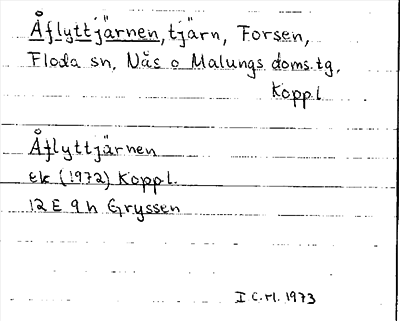 Åflyttjärnen, tjärn, Forsen,
Floda sn, Nås o Malungs doms.tg,
Koppl
Åflyttjärnen
ek (1972) Koppl.
12 E 9 h Gryssen
I C.rl. 1973